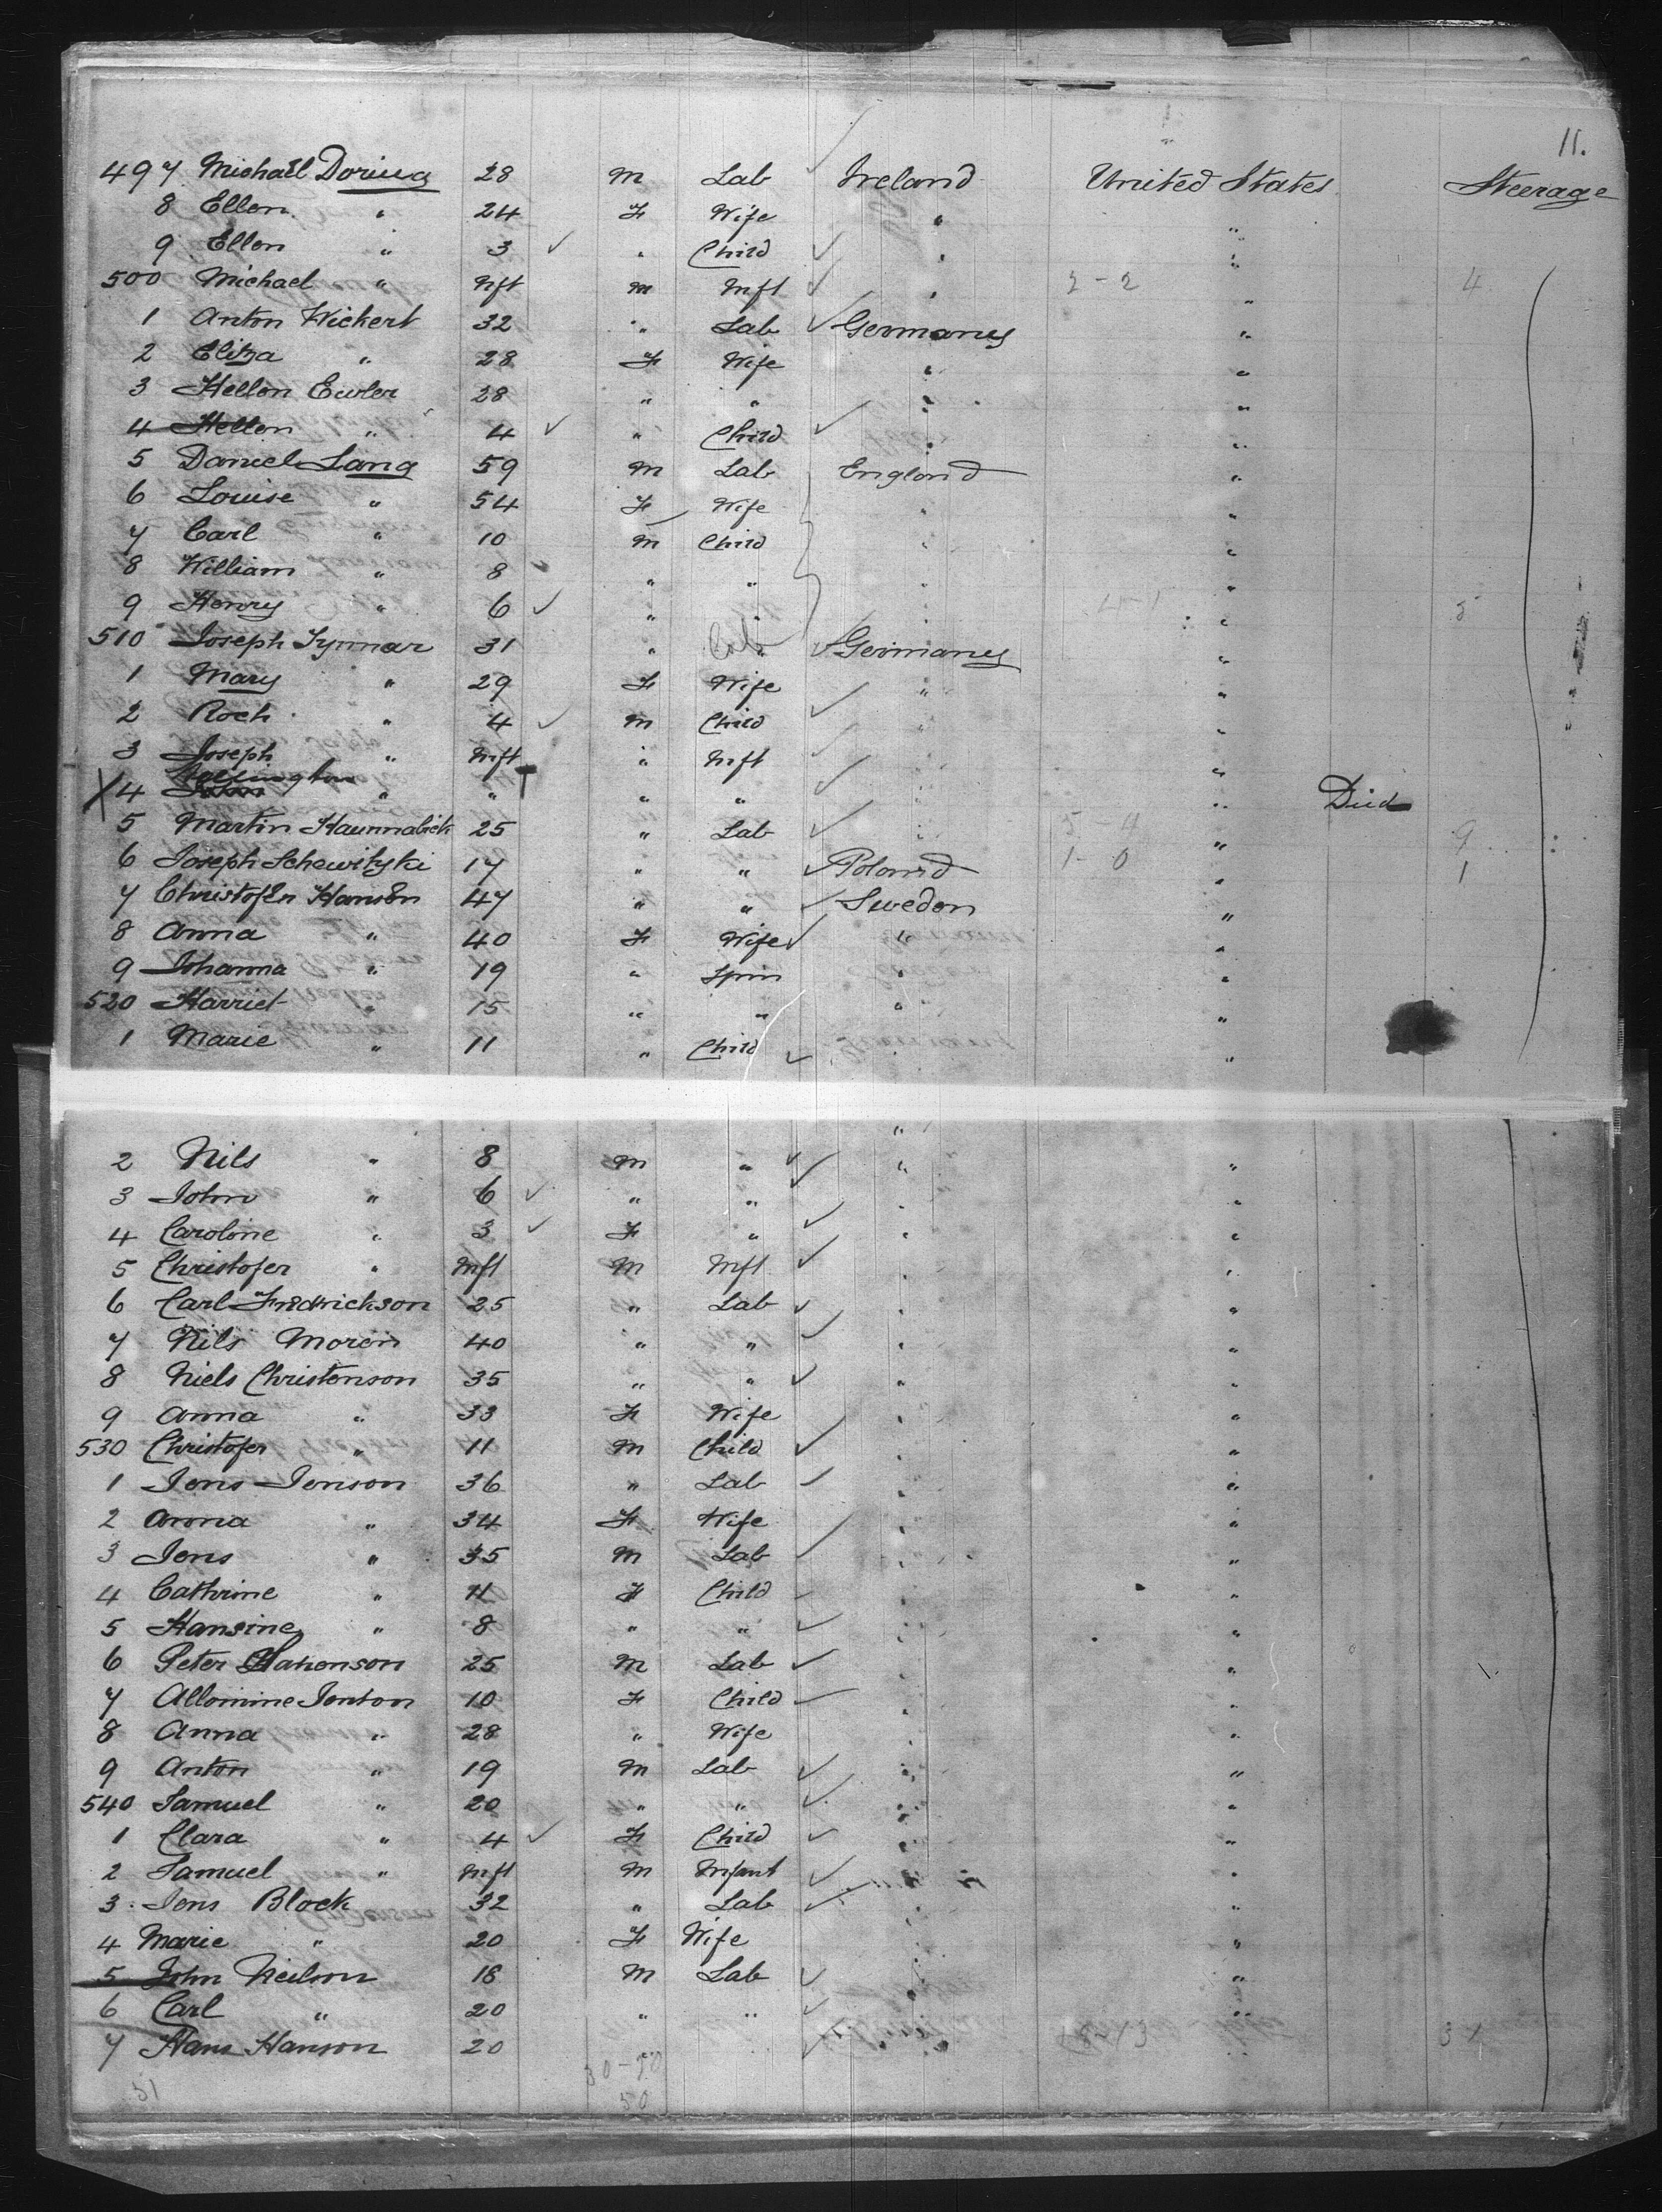 11.
497 Michael Dorina 28 M Lab Ireland United States Steerage
8 Ellen " 24 F Wife " "
9 Ellen " 3 " Child " "
500 Michael " Inft M Inft " 2-2 " 4
1 Anton Wickert 32 " Lab Germany "
2 Eliza " 28 F Wife " "
3 Hellen Euler 28 " " " "
4 Hellen " 4 " Child " "
5 Daniel Lang 59 M Lab England "
6 Louise " 54 F Wife " "
7 Carl " 10 M Child " "
8 William " 8 " " " "
9 Henry " 6 " " " 4-1 " 5
510 Joseph Tynnar 31 " Lab Germany "
1 Mary " 29 F Wife " "
2 Roch " 4 M Child " "
3 Joseph " Inft " Inft "
Wellington
X 4 " " " " " Died
5 Martin 25 " Lab 5-4 " 9
6 Joseph Schewitzki 17 " " Poland 1-0 " 1
7 Christofer Hansen 47 " " Sweden "
8 Anna " 40 F Wife " "
9 Johanna " 19 " Spin " "
520 Harriet " 15 " " " "
1 Marie " 11 " Child "
2 Nils " 8 M " " "
3 John " 6 " " " "
4 Caroline " 3 F " " "
5 Christofer " Inft M Inft " "
6 Carl Fredrickson 25 " Lab " "
7 Nils Moren 40 " " " "
8 Niels Christenson 35 " " " "
9 Anna " 33 F Wife " "
530 Christofer " 11 M Child " "
1 Jens Jenson 36 " Lab " "
2 Anna " 34 F Wife " "
3 Jens " 35 M Lab " "
4 Cathrine " 11 F Child " "
5 Hansine " 8 " " " "
6 Peter 25 M Lab " "
7 Allomine Jenton 10 F Child " "
8 Anna " 28 " Wife " "
9 Anton " 19 M Lab " "
540 Samuel " 20 " " " "
1 Clara " 4 F Child " "
2 Samuel " Inft M Infant " "
3 Jens Block 32 " Lab " "
4 Marie " 20 F Wife " "
5 John Neilson 18 M Lab " "
6 Carl " 20 " " " "
7 Hans Hanson 20 " " " 18-13 " 31
51 30-20
50